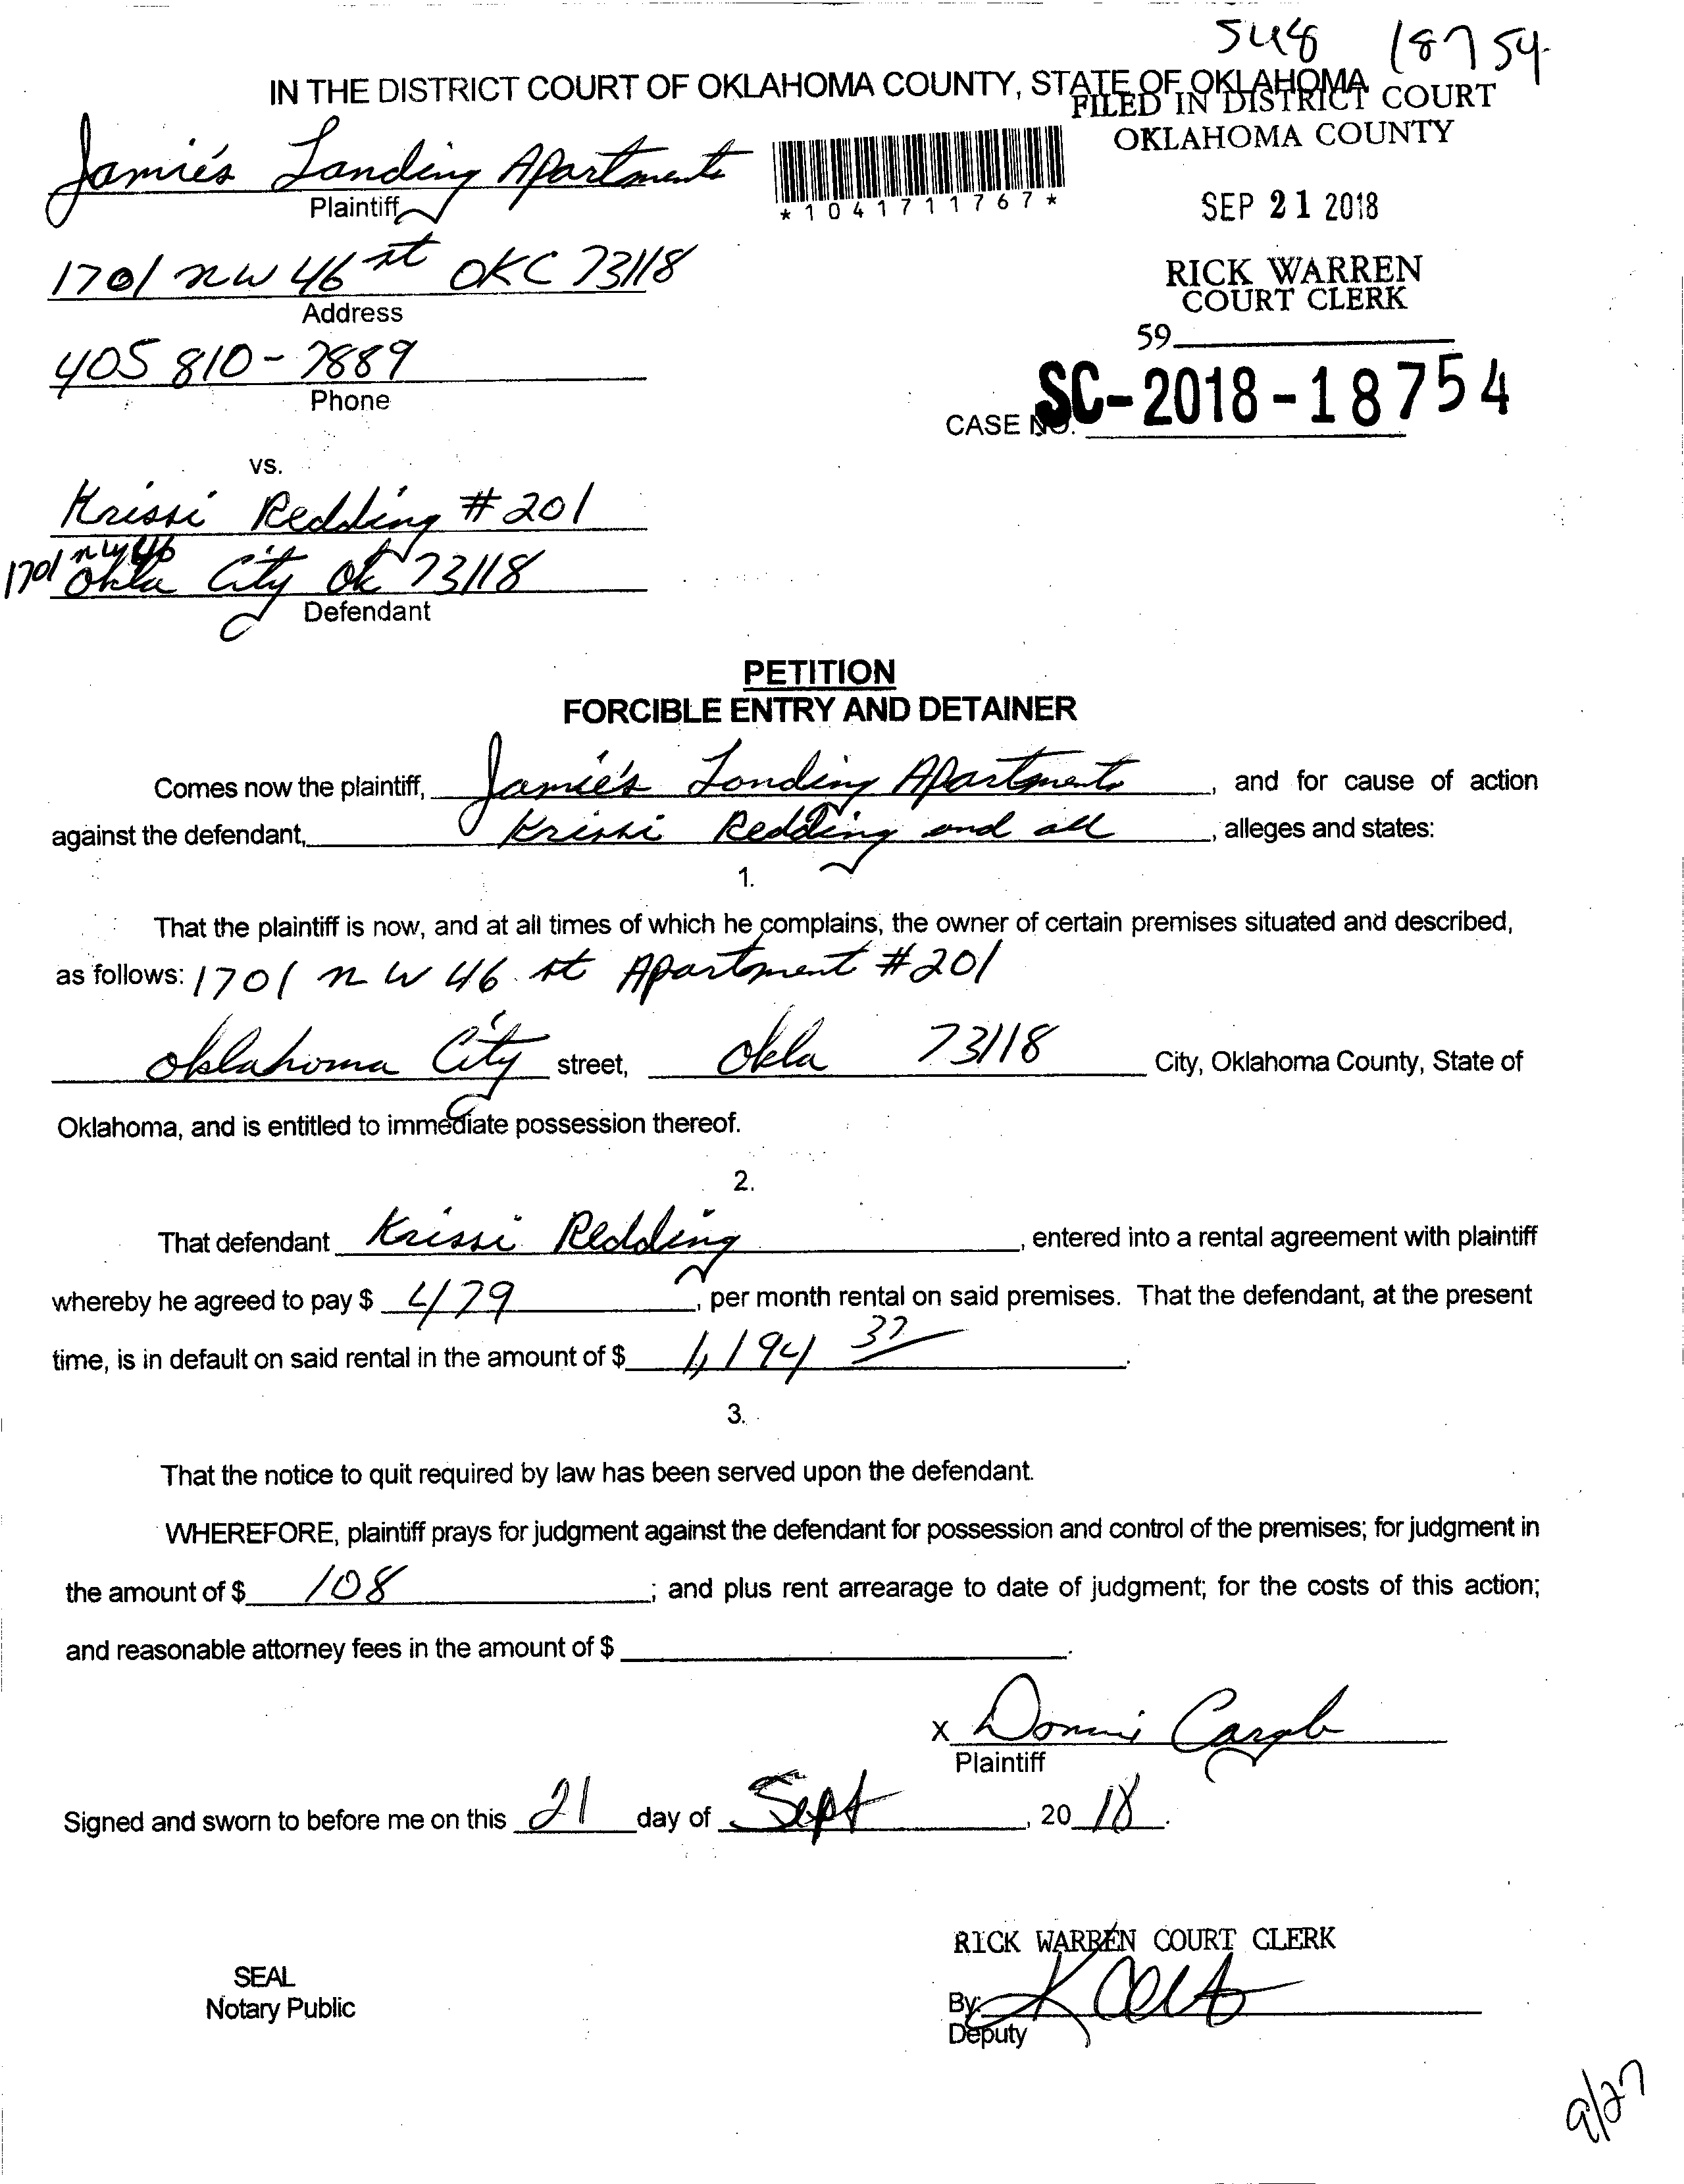 548 18754
IN THE DISTRICT COURT OF OKLAHOMA COUNTY, STATE OF OKLAHOMA
FILED IN DISTRICT COURT
OKLAHOMA COUNTY
Jamie's Landing Apartments
Plaintiff
*1041711767*
SEP 21 2018
1701 NW 46 st OKC 73118
Address
RICK WARREN
COURT CLERK
405 810-7889
Phone
59
CASE NO. SC-2018-18754
vs.
Krissi Redding #201
1701 NW 46
Okla City Ok 73118
Defendant
PETITION
FORCIBLE ENTRY AND DETAINER
Comes now the plaintiff, Jamie's Landing Apartments, and for cause of action
against the defendant, Krissi Redding and all, alleges and states:
1.
That the plaintiff is now, and at all times of which he complains, the owner of certain premises situated and described,
as follows: 1701 NW 46 st Apartment #201
Oklahoma City street, Okla 73118 City, Oklahoma County, State of
Oklahoma, and is entitled to immediate possession thereof.
2.
That defendant Krissi Redding, entered into a rental agreement with plaintiff
whereby he agreed to pay $ 479, per month rental on said premises. That the defendant, at the present
time, is in default on said rental in the amount of $ 1,194 37.
3.
That the notice to quit required by law has been served upon the defendant.
WHEREFORE, plaintiff prays for judgment against the defendant for possession and control of the premises; for judgment in
the amount of $ 108; and plus rent arrearage to date of judgment; for the costs of this action;
and reasonable attorney fees in the amount of $.
X
Plaintiff
Signed and sworn to before me on this 21 day of Sept, 20 18.
RICK WARREN COURT CLERK
SEAL
Notary Public
By:
Deputy
9/27